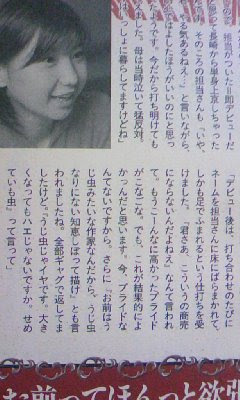 担当がついた即デビューだ
思って長崎から単身上京しちゃった
そのころの担当さんも「いや、
やる気あるねぇ…」と言いながら、
はよしたほうがいいのにと思っ
たようです。今だから打ち明けても
ました。母は当時泣いて猛反対。
っしょに暮らしてますけどね」
「デビュー後は、打ち合わせのたびに
ネームを担当さんに床にばらまかれて、
しかも足でふまれるという仕打ちを受
けました。「君さあ、こういうの商売
にならないんだよねえ」なんて言われ
て、もうこんなに高かったプライド
がこなごな。でも、これが結果的によ
かったんだと思います。今、プライドな
んてないですから。さらに「お前はう
じ虫みたいな作家なんだから、うじ虫
なりにない知恵しぼって描け」とも言
われましたね。全部ギャグで返してま
したけど。「うじ虫じゃイヤです。大き
くなってもハエじゃないですか。せめ
ていも虫」って言って」
お前ってほんっと欲張